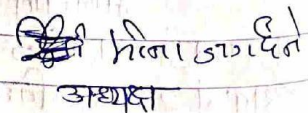 मिना जगर्दिने
अध्यक्ष